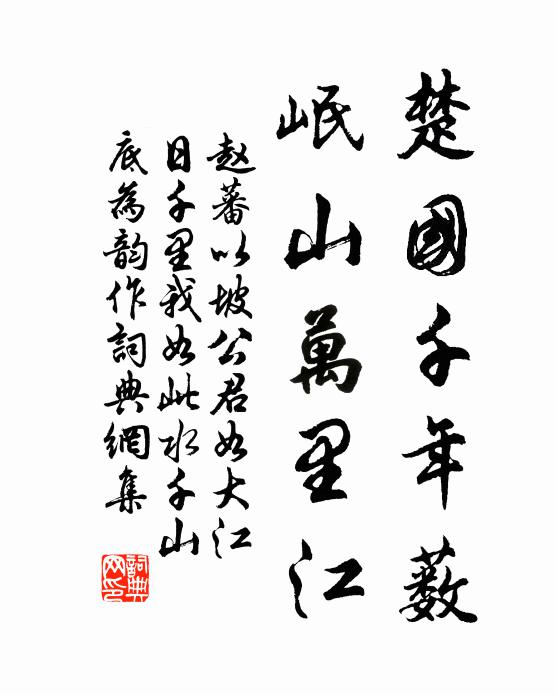 楚國千年藪
岷山萬里江
赵蕃以坡公君如大江
日千里我如此水千山
底為韵作詞典網集
詞典
网印